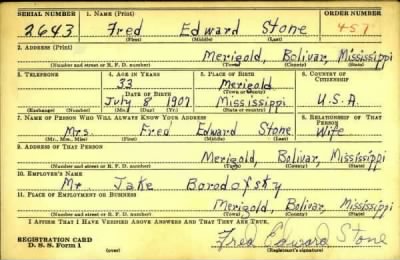 SERIAL NUMBER 1. NAME (Print) ORDER NUMBER
2643 Fred Edward Stone 457
(First) (Middle) (Last)
2. ADDRESS (Print)
Merigold, Bolivar, Mississippi
(Number and street or R. F. D. number) (Town) (County) (State)
3. TELEPHONE 4. AGE IN YEARS 5. PLACE OF BIRTH 6. COUNTRY OF CITIZENSHIP
33 Merigold
DATE OF BIRTH (Town or county)
July 8 1907 Mississippi U.S.A.
(Exchange) (Number) (Mo.) (Day) (Yr.) (State or country)
7. NAME OF PERSON WHO WILL ALWAYS KNOW YOUR ADDRESS 8. RELATIONSHIP OF THAT PERSON
Mrs. Fred Edward Stone Wife
(Mr., Mrs., Miss) (First) (Middle) (Last)
9. ADDRESS OF THAT PERSON
Merigold, Bolivar, Mississippi
(Number and street or R. F. D. number) (Town) (County) (State)
10. EMPLOYER'S NAME
Mr. Jake Borodofsky
11. PLACE OF EMPLOYMENT OR BUSINESS
Merigold, Bolivar, Mississippi
(Number and street or R. F. D. number) (Town) (County) (State)
I AFFIRM THAT I HAVE VERIFIED ABOVE ANSWERS AND THAT THEY ARE TRUE.
REGISTRATION CARD
D. S. S. Form 1 (over) Fred Edward Stone
(Registrant's signature)